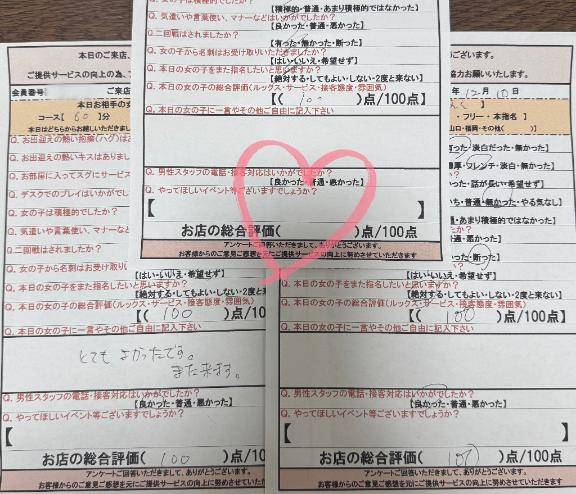 Q. 気遣いや言葉使い、マナーなどはいかがでしたか？
【積極的・普通・あまり積極的ではなかった】
【良かった・普通・悪かった】
Q. 二回戦はされましたか？
【有った・無かった・断った】
Q. 女の子から名刺はお受け取りいただきましたか？
【はい・いいえ・希望せず】
Q. 本日の女の子をまた指名したいと思いますか？
【絶対する・してもよい・しない・2度と来ない】
Q. 本日の女の子の総合評価(ルックス・サービス・接客態度・雰囲気)
【( 100 )点/100点】
Q. 本日の女の子に一言やその他ご自由に記入下さい
Q. 男性スタッフの電話・接客対応はいかがでしたか？
【良かった・普通・悪かった】
Q. やってほしいイベント等ございますでしょうか？
【
】
お店の総合評価( )点/100点
アンケートご回答いただきまして、ありがとうございます。
お客様からのご意見ご感想を元にご提供サービスの向上に努めさせていただきます
本日のご来店、
ご提供サービスの向上の為、ア
会員番号
ご来店
本日お相手の女
コース【 60 】分
本日はどちらからお越しいただきまし
Q. お出迎えの熱い抱擁(ハグ)はあ
Q. お出迎えの熱いキスはありまし
Q. お部屋に入ってスグにサービス
Q. デスクでのプレイはいかがでし
Q. 女の子は積極的でしたか？
Q. 気遣いや言葉使い、マナーなど
Q. 二回戦はされましたか？
Q. 女の子から名刺はお受け取り
【はい・いいえ・希望せず】
Q. 本日の女の子をまた指名したいと思いますか？
【絶対する・してもよい・しない・2度と来ない】
Q. 本日の女の子の総合評価(ルックス・サービス・接客態度・雰囲気)
【( 100 )点/10
Q. 本日の女の子に一言やその他ご自由に記入下さい
とても よかったです。
また来ます。
Q. 男性スタッフの電話・接客対応はいかがでしたか？
【良かった・普通・悪かった】
Q. やってほしいイベント等ございますでしょうか？
【
お店の総合評価( 100 )点/10
アンケートご回答いただきまして、ありがとうございます。
お客様からのご意見ご感想を元にご提供サービスの向上に努めさせていた
ございます。
協力お願いします。
年 12 月 10 日
・フリー・本指名】
山口・福岡・その他( )】
った・淡白だった・無かった】
濃厚・フレンチ・淡白・無かった】
った・話が長い・希望せず】
ち・普通・無かった・やる気なし】
・あまり積極的ではなかった】
かった・普通・悪かった】
った・無かった・断った】
【はい・いいえ・希望せず】
Q. 本日の女の子をまた指名したいと思いますか？
【絶対する・してもよい・しない・2度と来ない】
Q. 本日の女の子の総合評価(ルックス・サービス・接客態度・雰囲気)
【( 100 )点/100点】
Q. 本日の女の子に一言やその他ご自由に記入下さい
Q. 男性スタッフの電話・接客対応はいかがでしたか？
【良かった・普通・悪かった】
Q. やってほしいイベント等ございますでしょうか？
【
】
お店の総合評価( 100 )点/100点
アンケートご回答いただきまして、ありがとうございます。
お客様からのご意見ご感想を元にご提供サービスの向上に努めさせていただきます